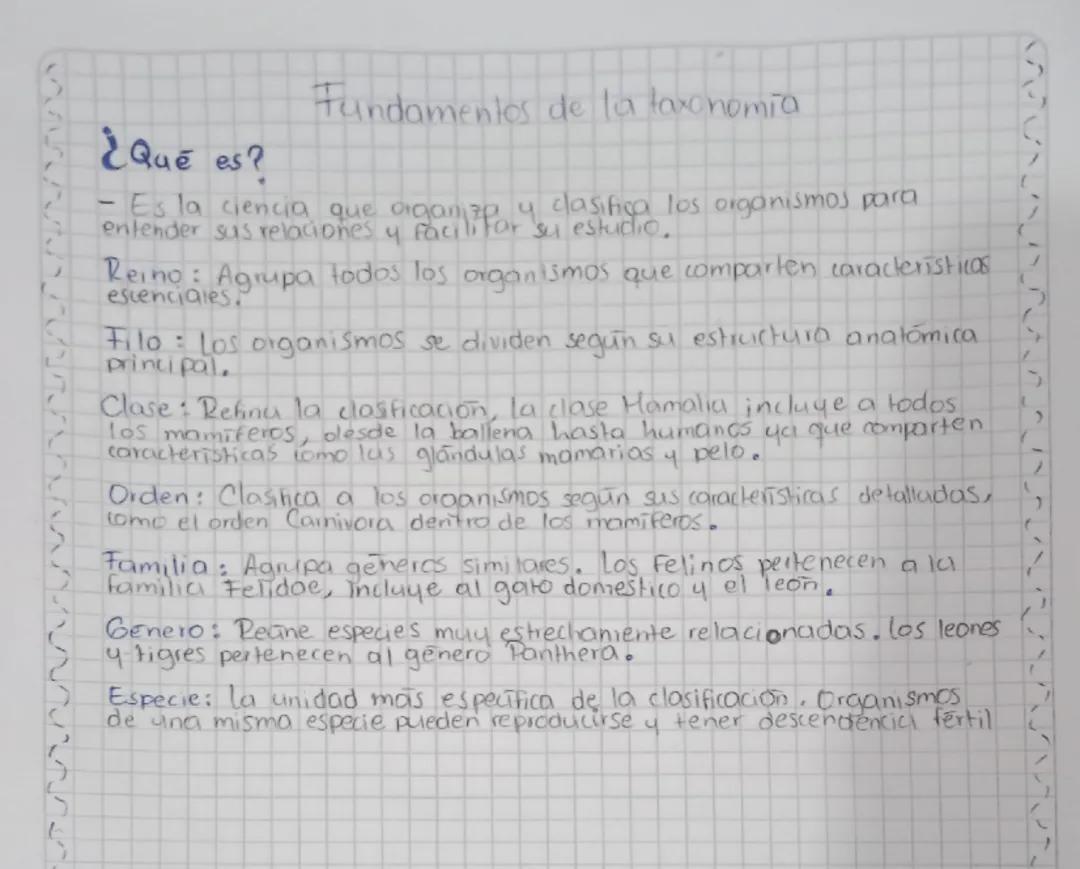 Fundamentos de la taxonomía
¿Qué es?
- Es la ciencia que organiza y clasifica los organismos para
entender sus relaciones y facilitar su estudio.
Reino: Agrupa todos los organismos que comparten características
escenciales.
Filo: Los organismos se dividen según su estructura anatómica
principal.
Clase: Refina la clasficacion, la clase Mamalia incluye a todos
los mamíferos, desde la ballena hasta humanos ya que comparten
características como las glándulas mamarias y pelo.
Orden: Clasifica a los organismos según sus características detalladas,
como el orden Carnivora dentro de los mamíferos.
Familia: Agrupa géneros similares. Los Felinos pertenecen a la
familia Felidae, incluye al gato domestico y el león.
Genero: Reúne especies muy estrechamente relacionadas. Los leones
y tigres pertenecen al género Panthera.
Especie: La unidad más específica de la clasificación. Organismos
de una misma especie pueden reproducirse y tener descendencia fértil